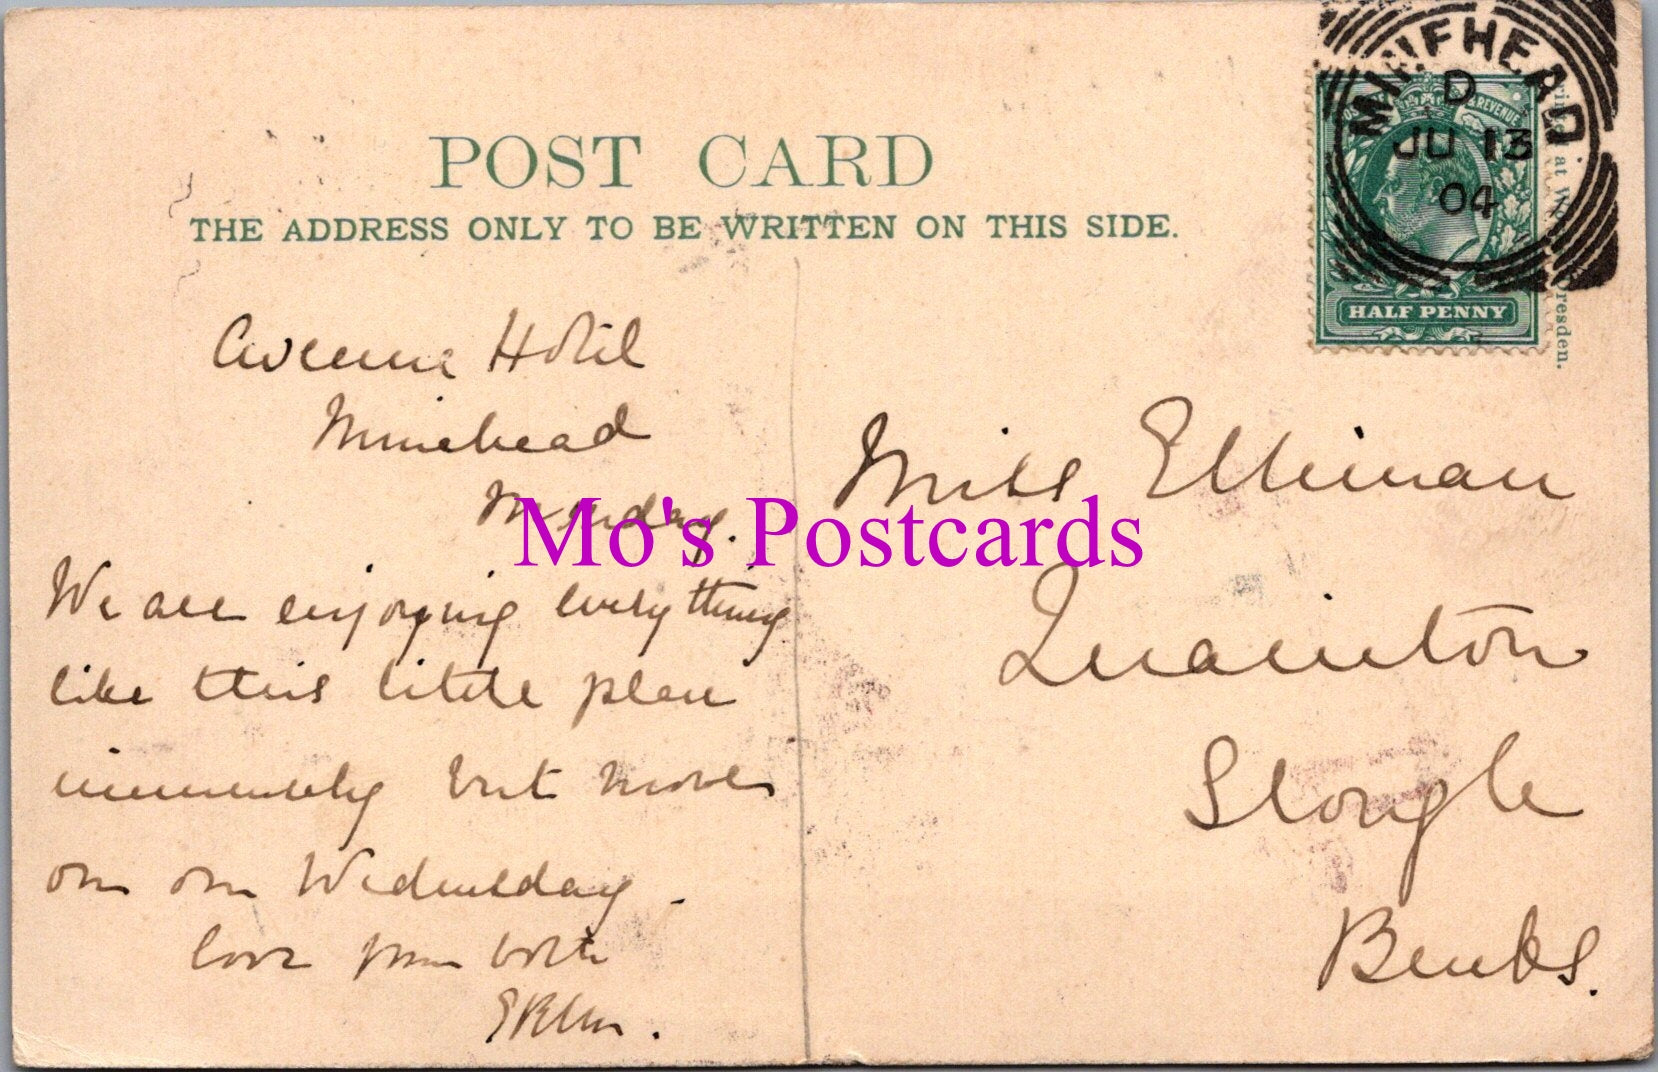 POST CARD
THE ADDRESS ONLY TO BE WRITTEN ON THIS SIDE.
MINEHEAD
D
JU 13
04
POSTAGE & REVENUE
HALF PENNY
Printed at Dresden.
Avenue Hotel
Minehead
Monday.
We are enjoying everything
like this little place
immensely but move
on on Wednesday -
love from both
Miss Elliman
Quainton
Slough
Bucks.
Mo's Postcards